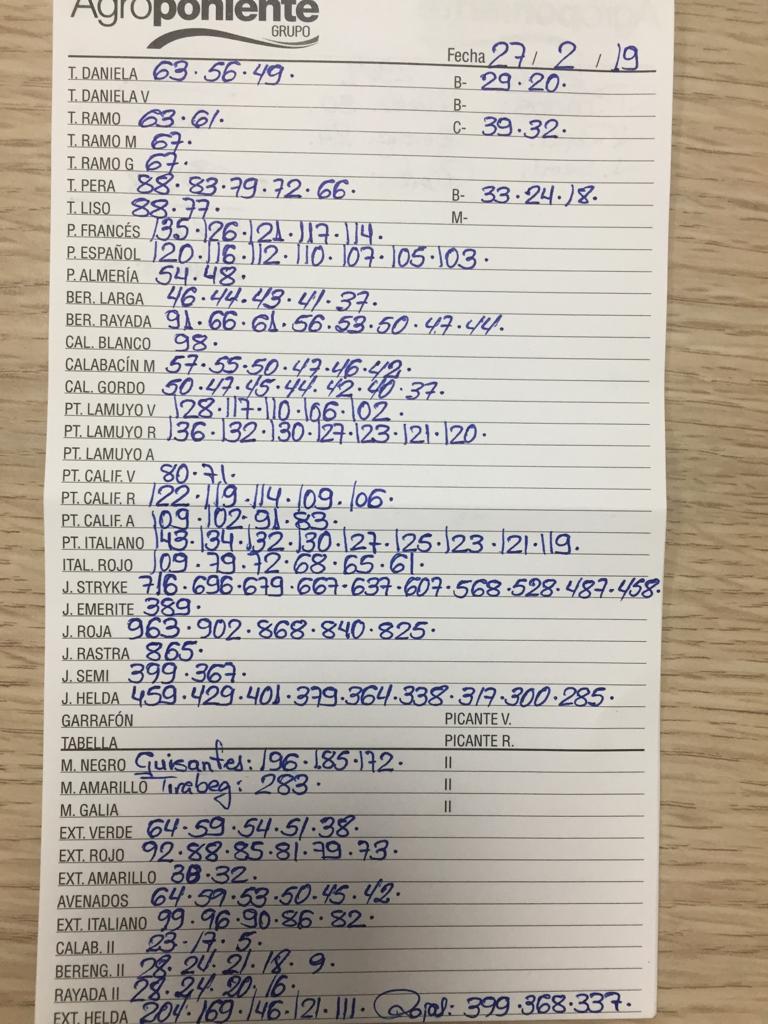 Agroponiente
GRUPO
Fecha 27 / 2 / 19
T. DANIELA 63 · 56 · 49 · B- 29 · 20 ·
T. DANIELA V B-
T. RAMO 63 · 61 · C- 39 · 32 ·
T. RAMO M 67 ·
T. RAMO G 67 ·
T. PERA 88 · 83 · 79 · 72 · 66 · B- 33 · 24 · 18 ·
T. LISO 88 · 77 · M-
P. FRANCÉS 135 · 126 · 121 · 117 · 114 ·
P. ESPAÑOL 120 · 116 · 112 · 110 · 107 · 105 · 103 ·
P. ALMERÍA 54 · 48 ·
BER. LARGA 46 · 44 · 43 · 41 · 37 ·
BER. RAYADA 91 · 66 · 61 · 56 · 53 · 50 · 47 · 44 ·
CAL. BLANCO 98 ·
CALABACÍN M 57 · 55 · 50 · 47 · 46 · 42 ·
CAL. GORDO 50 · 47 · 45 · 44 · 42 · 40 · 37 ·
PT. LAMUYO V 128 · 117 · 110 · 106 · 102 ·
PT. LAMUYO R 136 · 132 · 130 · 127 · 123 · 121 · 120 ·
PT. LAMUYO A
PT. CALIF. V 80 · 71 ·
PT. CALIF. R 122 · 119 · 114 · 109 · 106 ·
PT. CALIF. A 109 · 102 · 91 · 83 ·
PT. ITALIANO 143 · 134 · 132 · 130 · 127 · 125 · 123 · 121 · 119 ·
ITAL. ROJO 109 · 79 · 72 · 68 · 65 · 61 ·
J. STRYKE 716 · 696 · 679 · 667 · 637 · 607 · 568 · 528 · 487 · 458 ·
J. EMERITE 389 ·
J. ROJA 963 · 902 · 868 · 840 · 825 ·
J. RASTRA 865 ·
J. SEMI 399 · 367 ·
J. HELDA 459 · 429 · 401 · 379 · 364 · 338 · 317 · 300 · 285 ·
GARRAFÓN PICANTE V.
TABELLA PICANTE R.
M. NEGRO Guisantes: 196 · 185 · 172 · II
M. AMARILLO Tirabeq: 283 · II
M. GALIA II
EXT. VERDE 64 · 59 · 54 · 51 · 38 ·
EXT. ROJO 92 · 88 · 85 · 81 · 79 · 73 ·
EXT. AMARILLO 38 · 32 ·
AVENADOS 64 · 59 · 53 · 50 · 45 · 42 ·
EXT. ITALIANO 99 · 96 · 90 · 86 · 82 ·
CALAB. II 23 · 17 · 5 ·
BERENG. II 28 · 24 · 21 · 18 · 9 ·
RAYADA II 28 · 24 · 20 · 16 ·
EXT. HELDA 204 · 169 · 146 · 121 · 111 · 399 · 368 · 337 ·